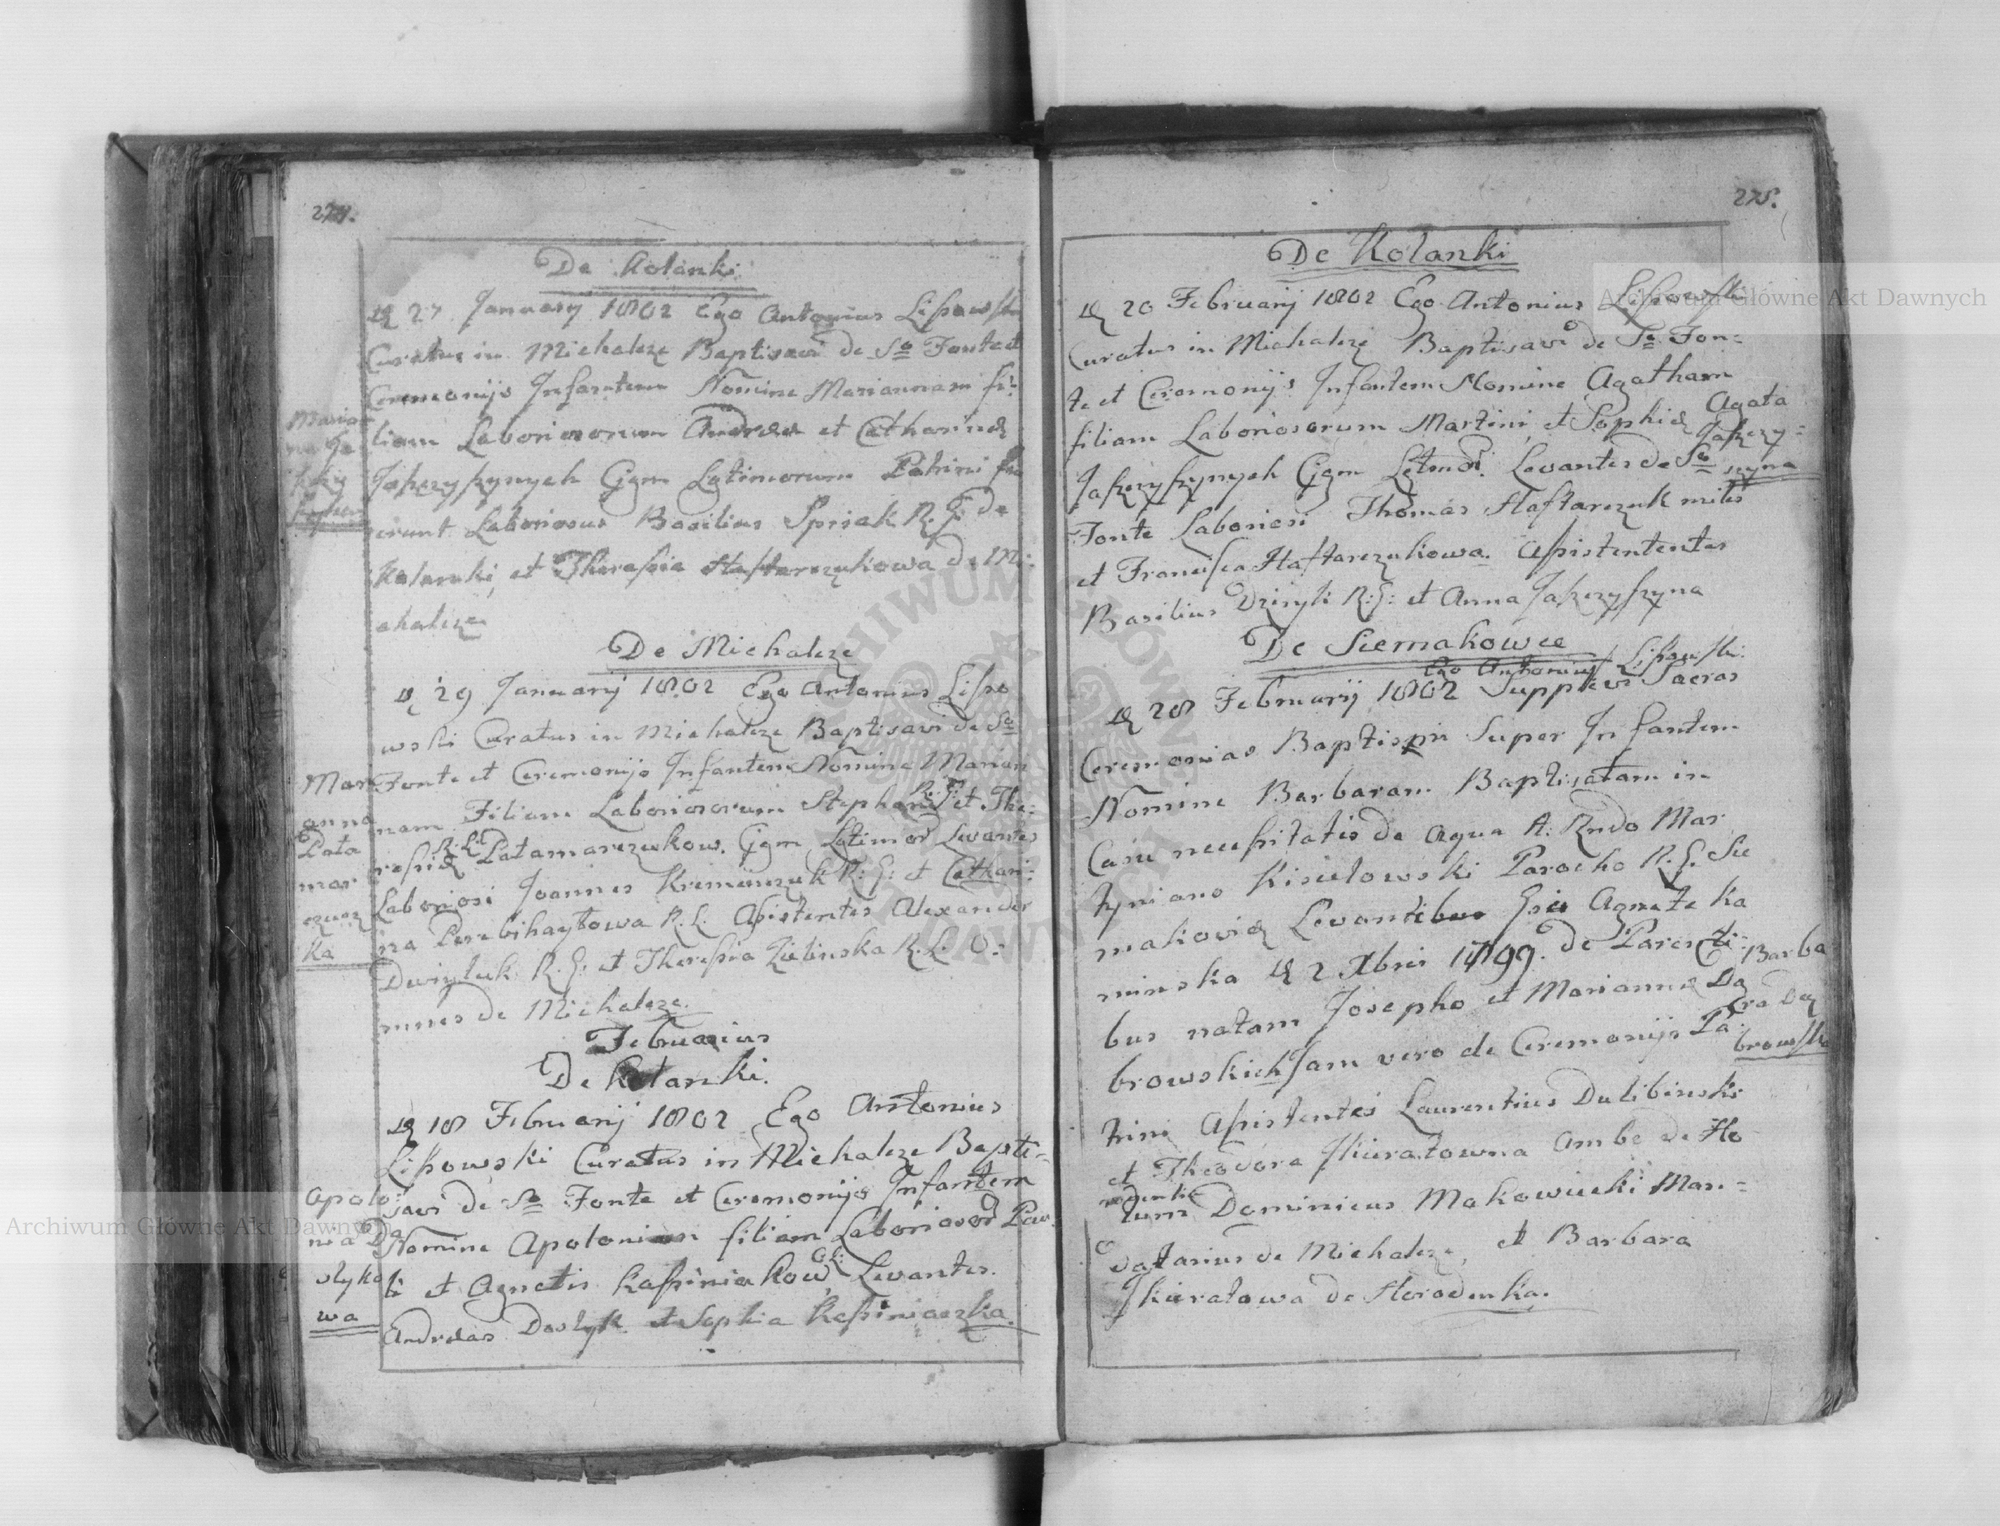 274.
De Kolanki
D 27 January 1802 Ego Antonius Lissowski
Curatus in Michalcze Baptisavi de So Fonte et
Ceremonijs Infantem Nomine Mariannam fi-
liam Laboriosorum Andreæ et Catharinæ
Jaszczyszynych Cjgm Latinorum Patrini fu
erunt Laboriosus Basilius Spisak R. G. de
Kolanki, et Theressia Haftarczukowa de Mi-
chalcze
Marian
na Ja
De Michalcze
D 29 January 1802 Ego Antonius Lisso
wski Curatus in Michalcze Baptisavi de So
Fonte et Ceremonijs Infantem Nomine Marian
nam Filiam Laboriosorum Stephani R: G: et The-
ressiæ R. L. Patamarczukow. Cjgm Latinor Levantes
Laboriosi Joannes Kremenczuk R: G: et Cathari-
na Perebihaytowa R. L. Assistentes Alexander
Dwizyluk R. G: et Theressia Zielinska R. L. O:
mnes de Michalcze.
Mar
anna
Pata
mar
czucz
ka
Februarius
De Kolanki.
D 18 February 1802 Ego Antonius
Lissowski Curatus in Michalcze Bapti-
savi de So Fonte et Ceremonijs Infantem
Nomine Apolonian filiam Laboriosor Paw
li et Agnetis Kassiniakow G: Levantes.
Andreas Doslyk et Sophia Kassiniaczka.
Apolo
nia Do
slyko
wa
275.
De Kolanki
D 20 Februarij 1802 Ego Antonius Lissowski
Curatus in Michalcze Baptisavi de So Fon-
te et Ceremonijs Infantem Nomine Agatham
filiam Laboriosorum Martini et Sophiæ
Jaszczyszynych Cjgm Letmor. Levantes de So
Fonte Laboriosi Thomas Haftarczuk miles
et Francisca Haftarczukowa. Assistentes
Basilius R: G: et Anna Jaszczyszyna
Agata
Jaszczy-
szyna
De Siemakowce
Ego Antonius Lissowski
D 28 Februarij 1802 Supplevi Sacras
Ceremonias Baptismi Super Infantem
Nomine Barbaram Baptisatam in
Casu necessitatis de Aqua A. Rndo Mar
tyniano Kisielowski Parocho R. G. Sie
makoviæ Levantibus Gsis Agnete Ka
minska D 2 Xbris 1799. de Parenti-
bus natam Josepho et Mariannæ Da
browskich Jam vero de Ceremonijs Pa-
trini Assistentes Laurentius Dulibinski
et Theodora Skieratowna Ambo de Ho
rodenka
tum Dominicus Makowiecki Man-
datarius de Michalcze, et Barbara
Skieratowa de Horodenka.
Barba
ra Dą
browska